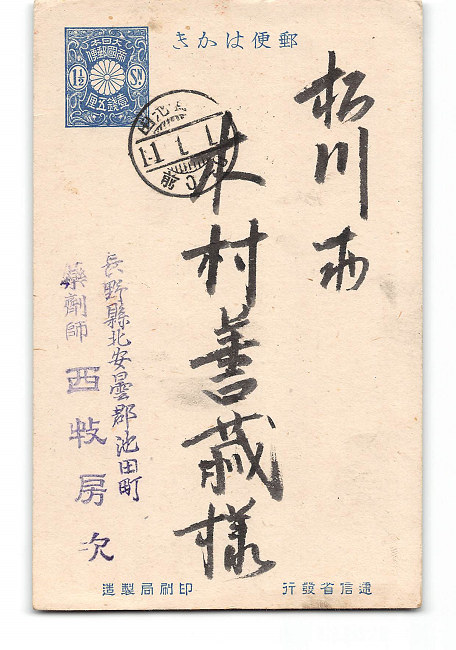 郵便はかき
大日本
帝國郵便
1½ Sn
壹錢五厘
前0
松川
木村善蔵様
長野縣北安曇郡池田町
藥劑師 西牧房次
遞信省發行 印刷局製造